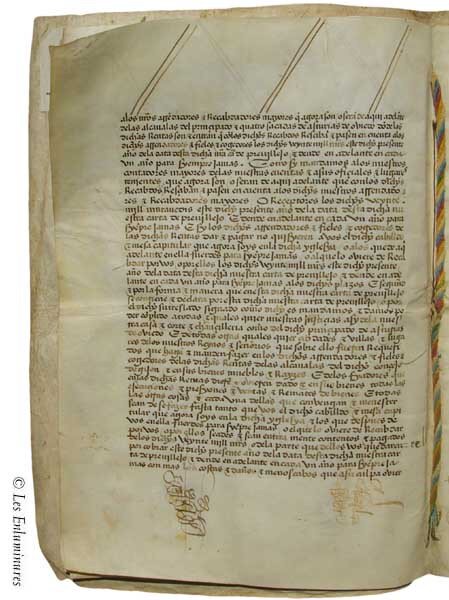 alos nr̃os arrẽdadores & Recabdadores mayores q̃ agora son o seran de aqui adelãte
delas alcaualas del principado & quatro sacadas de asturias de ouiedo
dichas Rentas son & entran q̃ cõ los dichos Recabdos Resçiban & pasen en cuenta alos
dichos arrendadores & fieles & cogedores los dichos veynte mill mr̃s este dicho presente
año dela data desta dicha nr̃a carta de preuillejo & dende en adelante en cada
vn año para syenpre jamas. E otrosy mandamos alos nuestros
contadores mayores delas nuestras cuentas & asus ofiçiales & lugares
tenientes que agora son o seran de aqui adelante que conlos dichos
Recabdos Resçiban & pasen en cuenta alos dichos nuestros arrendado
res & Recabdadores mayores o Reçeptores los dichos veynte
mill mr̃s este dicho presente año dela data desta dicha nu
estra carta de preuillejo & dende en adelante en cada vn año para
syẽpre jamas. E sy los dichos arrendadores & fieles & cogedores de
las dichas Rentas dar & pagar no quisieren a vos el dicho cabildo
& mesa capitular que agora soys enla dicha yglesia o alos que de aq̃
adelante enella fueren para syẽpre jamas o al que lo ouiere de Recab
dar por vos o por ellos los dichos veynte mill mr̃s este dicho presente
año dela data desta dicha nuestra carta de preuillejo & dende en ade
lante en cada vn año para syẽpre jamas alos dichos plazos & segund
& por la forma & manera que enesta dicha nuestra carta de preuillejo
se contiene & declara por esta dicha nuestra carta de preuillejo o por
el dicho su treslado signado como dicho es mandamos & damos po
der cõplido a todos & quales quier nuestras justiçias asy dela nues
tra casa & corte & chançilleria como del dicho principado de asturias
de ouiedo & de todas otras quales quier çibdades & villas & luga
res delos nuestros Reynos & señorios que sobre ello fueren Requeri
dos que fagan & manden fazer enlos dichos arrendadores & fieles &
cogedores delas dichas Rentas delas alcaualas del dicho conçejo
& en sus bienes muebles & Rayzes & delos fiadores que
enlas dichas Rentas dieren & ouieren dado & en sus bienes todas las
execuçiones & prisyones & ventas & Remates de bienes & todas
las otras cosas & cada vna dellas que conuengan & menester
sean de se fazer fasta tanto que vos el dicho cabildo & mesa capi
tular que agora soys enla dicha yglesia & los que despues de
vos enella fueren para syẽpre jamas o el que lo ouiere de Recabdar
por vos o por ellos seades & sean entera mente contentos & pagados
delos dichos veynte mill mr̃s o dela parte que dellos vos quedare
por cobrar este dicho presente año dela data desta dicha nuestra car
ta de preuillejo & dende en adelante en cada vn año para syẽpre ja
mas con mas las costas & daños & menoscabos que a su culpa ouier
© Les Enluminures